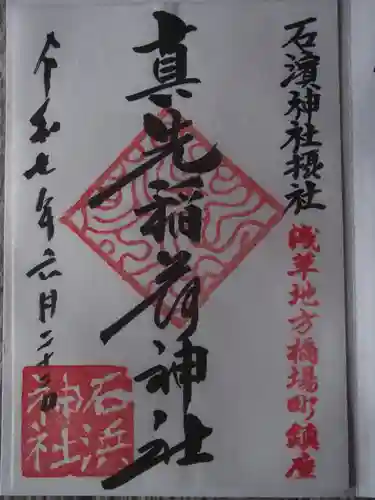 石濱神社摂社
浅草地方橋場町鎮座
真先稲荷神社
令和七年六月二十一日
石浜
神社